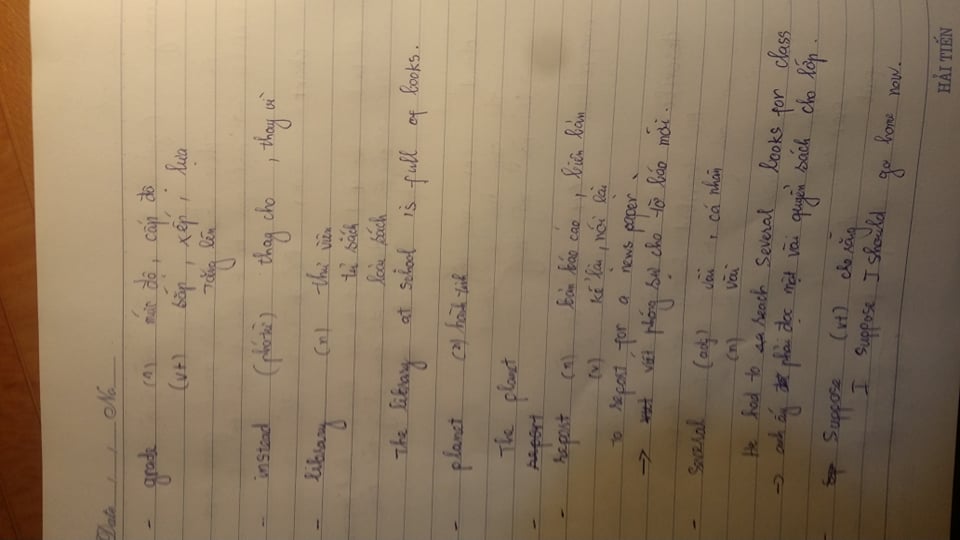 Date / / No
- grade (n) mức độ, cấp độ
(vt) sắp, xếp, lựa
tăng lên
- instead (phó từ) thay cho, thay vì
- library (n) thư viện
tủ sách
loại sách
The library at school is full of books.
- planet (n) hành tinh
The planet
- report
- report (n) bản báo cáo, biên bản
(v) kể lại, nói lại
to report for a news paper
→ viết phóng sự cho tờ báo mới.
- several (adj) vài, cá nhân
(n) vài
He had to seach several books for class
→ anh ấy phải đọc một vài quyển sách cho lớp.
- Suppose (vt) cho rằng
I suppose I should go home now.
HẢI TIẾN